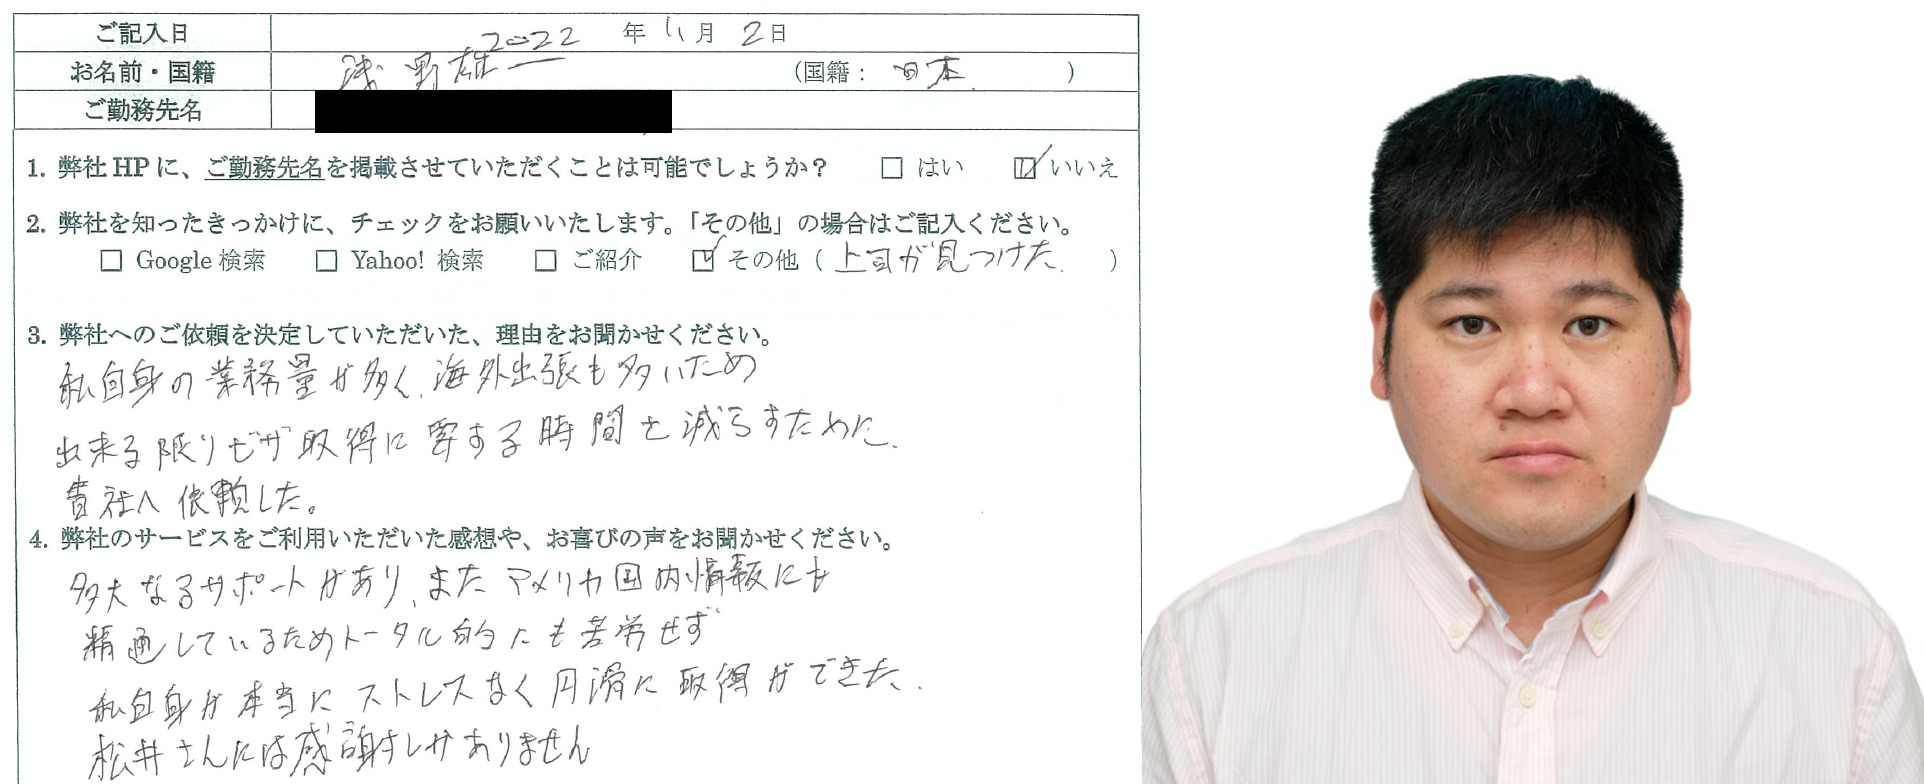 ご記入日 2022 年 11 月 2 日
お名前・国籍 浅野雄一 (国籍: 日本 )
ご勤務先名
1. 弊社 HP に、ご勤務先名を掲載させていただくことは可能でしょうか? □ はい ☑ いいえ
2. 弊社を知ったきっかけに、チェックをお願いいたします。「その他」の場合はご記入ください。
□ Google 検索 □ Yahoo! 検索 □ ご紹介 ☑ その他 ( 上司が見つけた. )
3. 弊社へのご依頼を決定していただいた、理由をお聞かせください。
私自身の業務量が多く、海外出張も多いため
出来る限りビザ取得に要する時間を減らすために、
貴社へ依頼した。
4. 弊社のサービスをご利用いただいた感想や、お喜びの声をお聞かせください。
多大なるサポートがあり、またアメリカ国内情報にも
精通しているためトータル的にも苦労せず
私自身が本当にストレスなく円滑に取得ができた、
松井さんには感謝しかありません